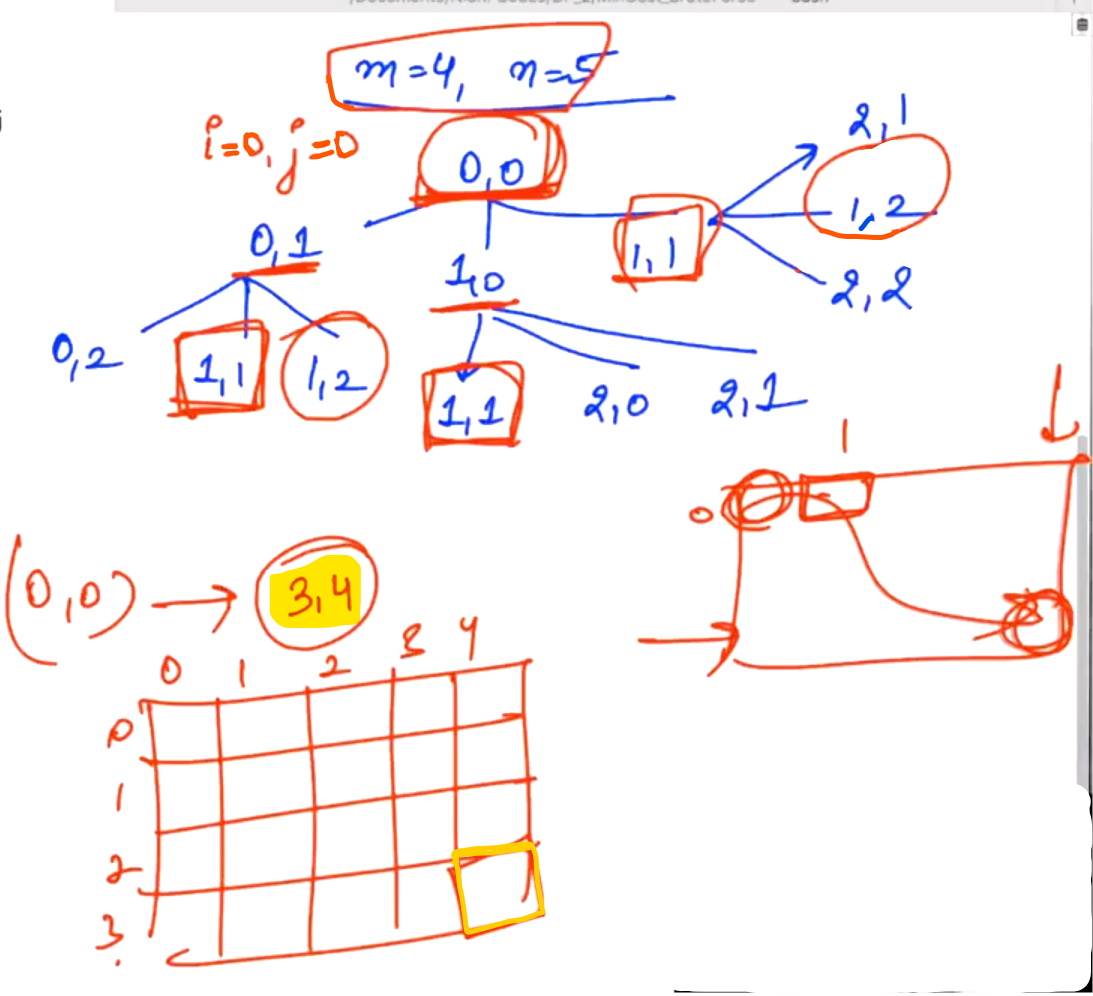 m=4, n=5
i=0, j=0
0,0
2,1
1,2
2,2
1,1
0,1
1,0
0,2
1,1
1,2
1,1
2,0
2,1
1
0
(0,0) → 3,4
0 1 2 3 4
0
1
2
3